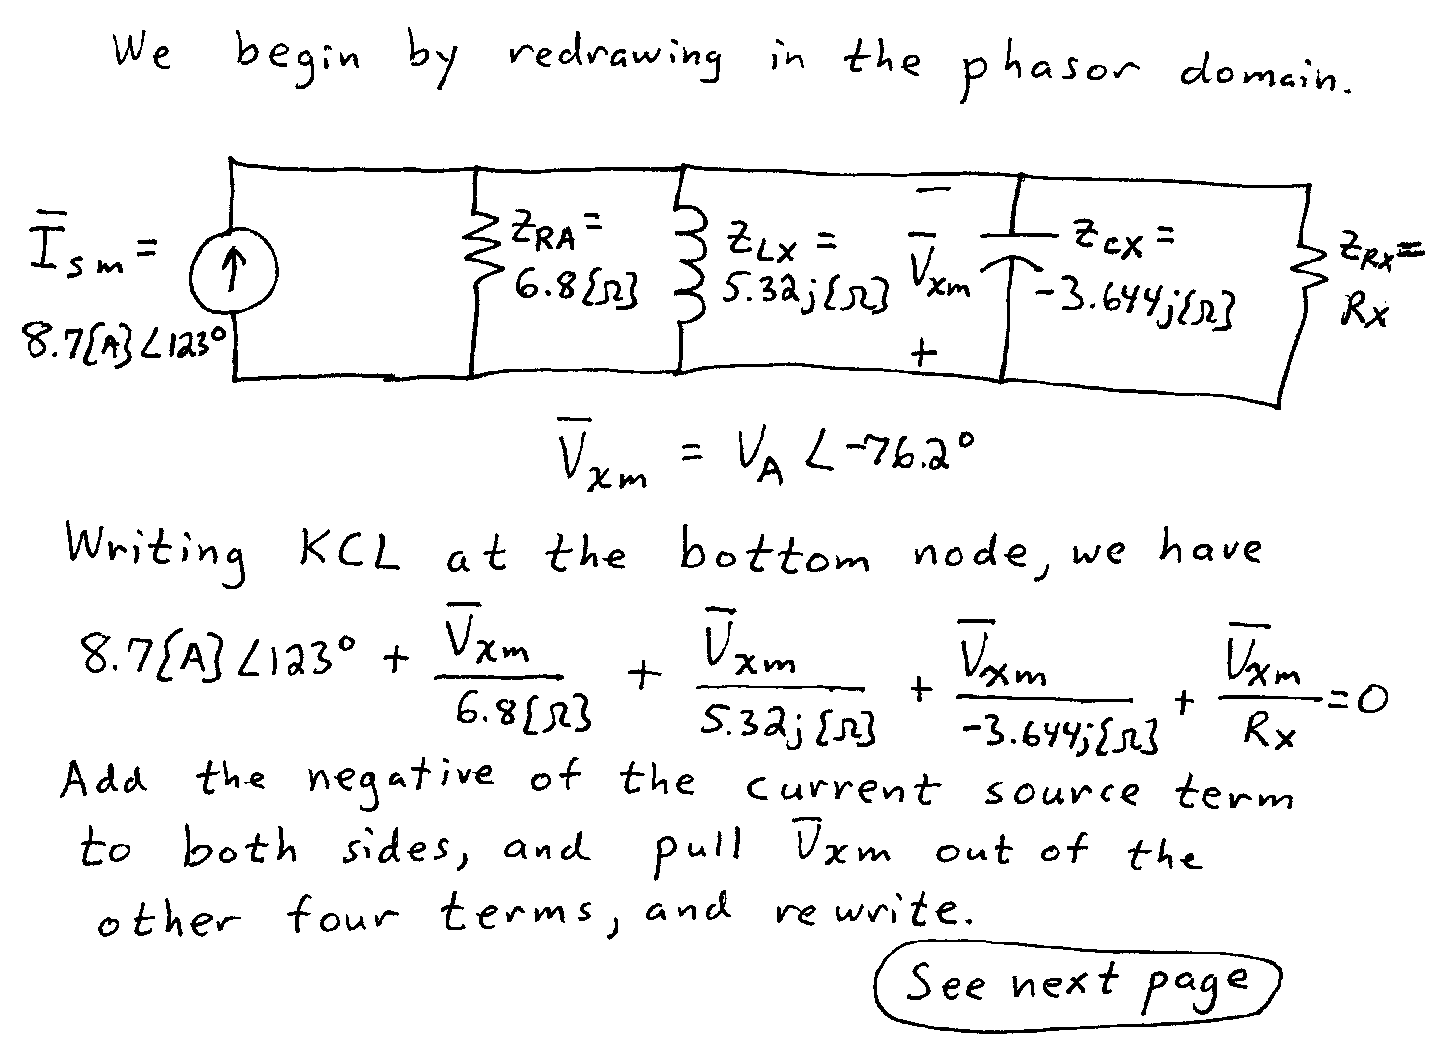 We begin by redrawing in the phasor domain.
I̅sm =
8.7[A]∠123°
ZRA =
6.8[Ω]
ZLX =
5.32j[Ω]
−
V̅xm
+
ZCX =
-3.644j[Ω]
ZRX =
RX
V̅xm = VA ∠-76.2°
Writing KCL at the bottom node, we have
8.7[A]∠123° + V̅xm/6.8[Ω] + V̅xm/5.32j[Ω] + V̅xm/-3.644j[Ω] + V̅xm/RX = 0
Add the negative of the current source term
to both sides, and pull V̅xm out of the
other four terms, and rewrite.
See next page